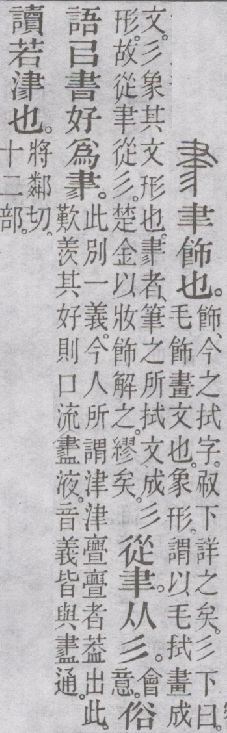 聿飾也。飾、今之拭字。㕞下詳之矣。彡下曰。毛飾畫文也。象形。謂以毛拭畫成
文。彡象其文形也。𦘔者、筆之所拭文成彡形。故從聿從彡。楚金以妝飾解之。繆矣。從聿。从彡。會意。俗
語㠯書好爲𦘔。此別一義。今人所謂津津亹亹者葢出此。歎羨其好則口流𧗁液。音義皆與𧗁通。
讀若津也。將鄰切。十二部。